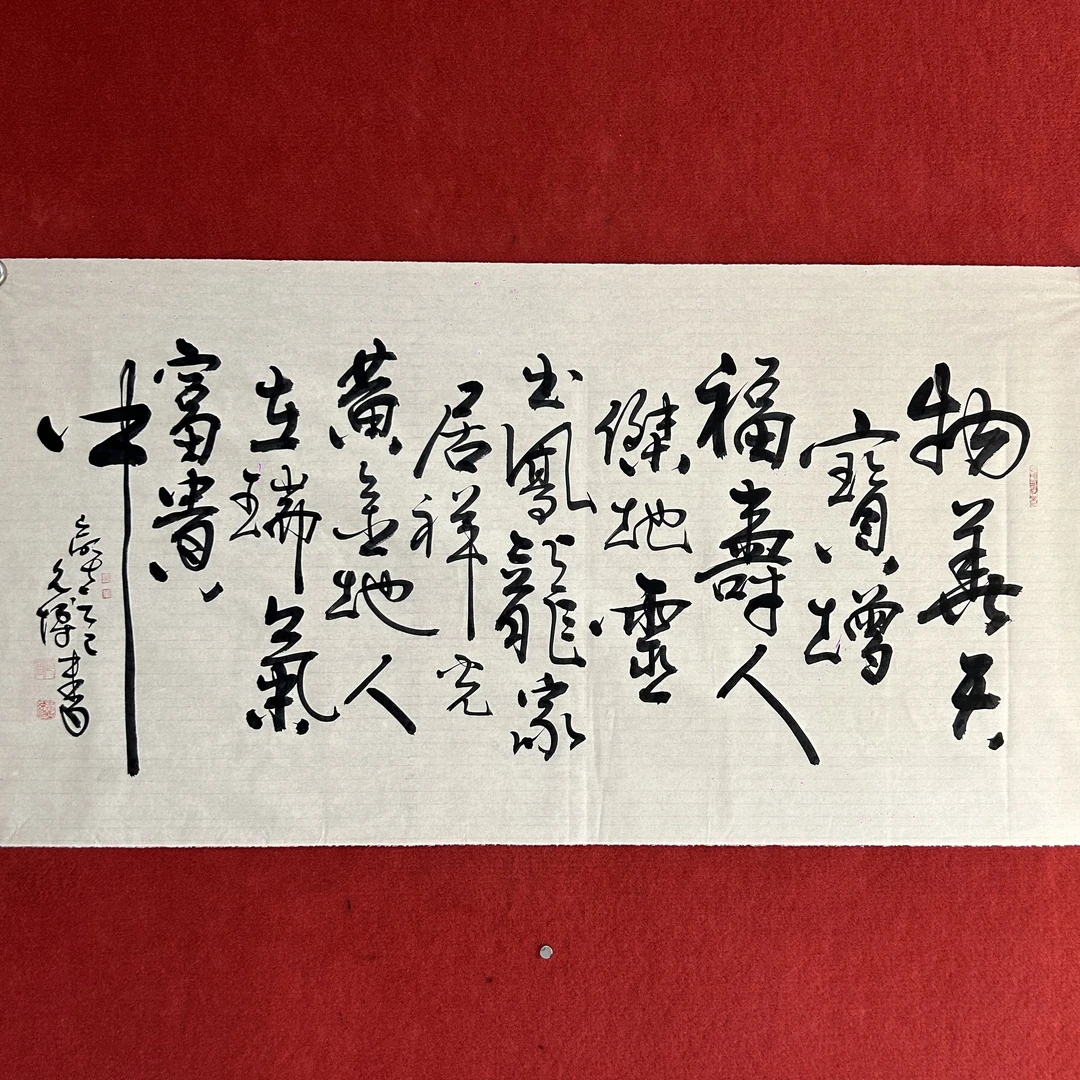 物華天
寶增
福壽人
傑地靈
出鳳龍家
居祥光
黃金地人
在瑞氣
富貴
中
書